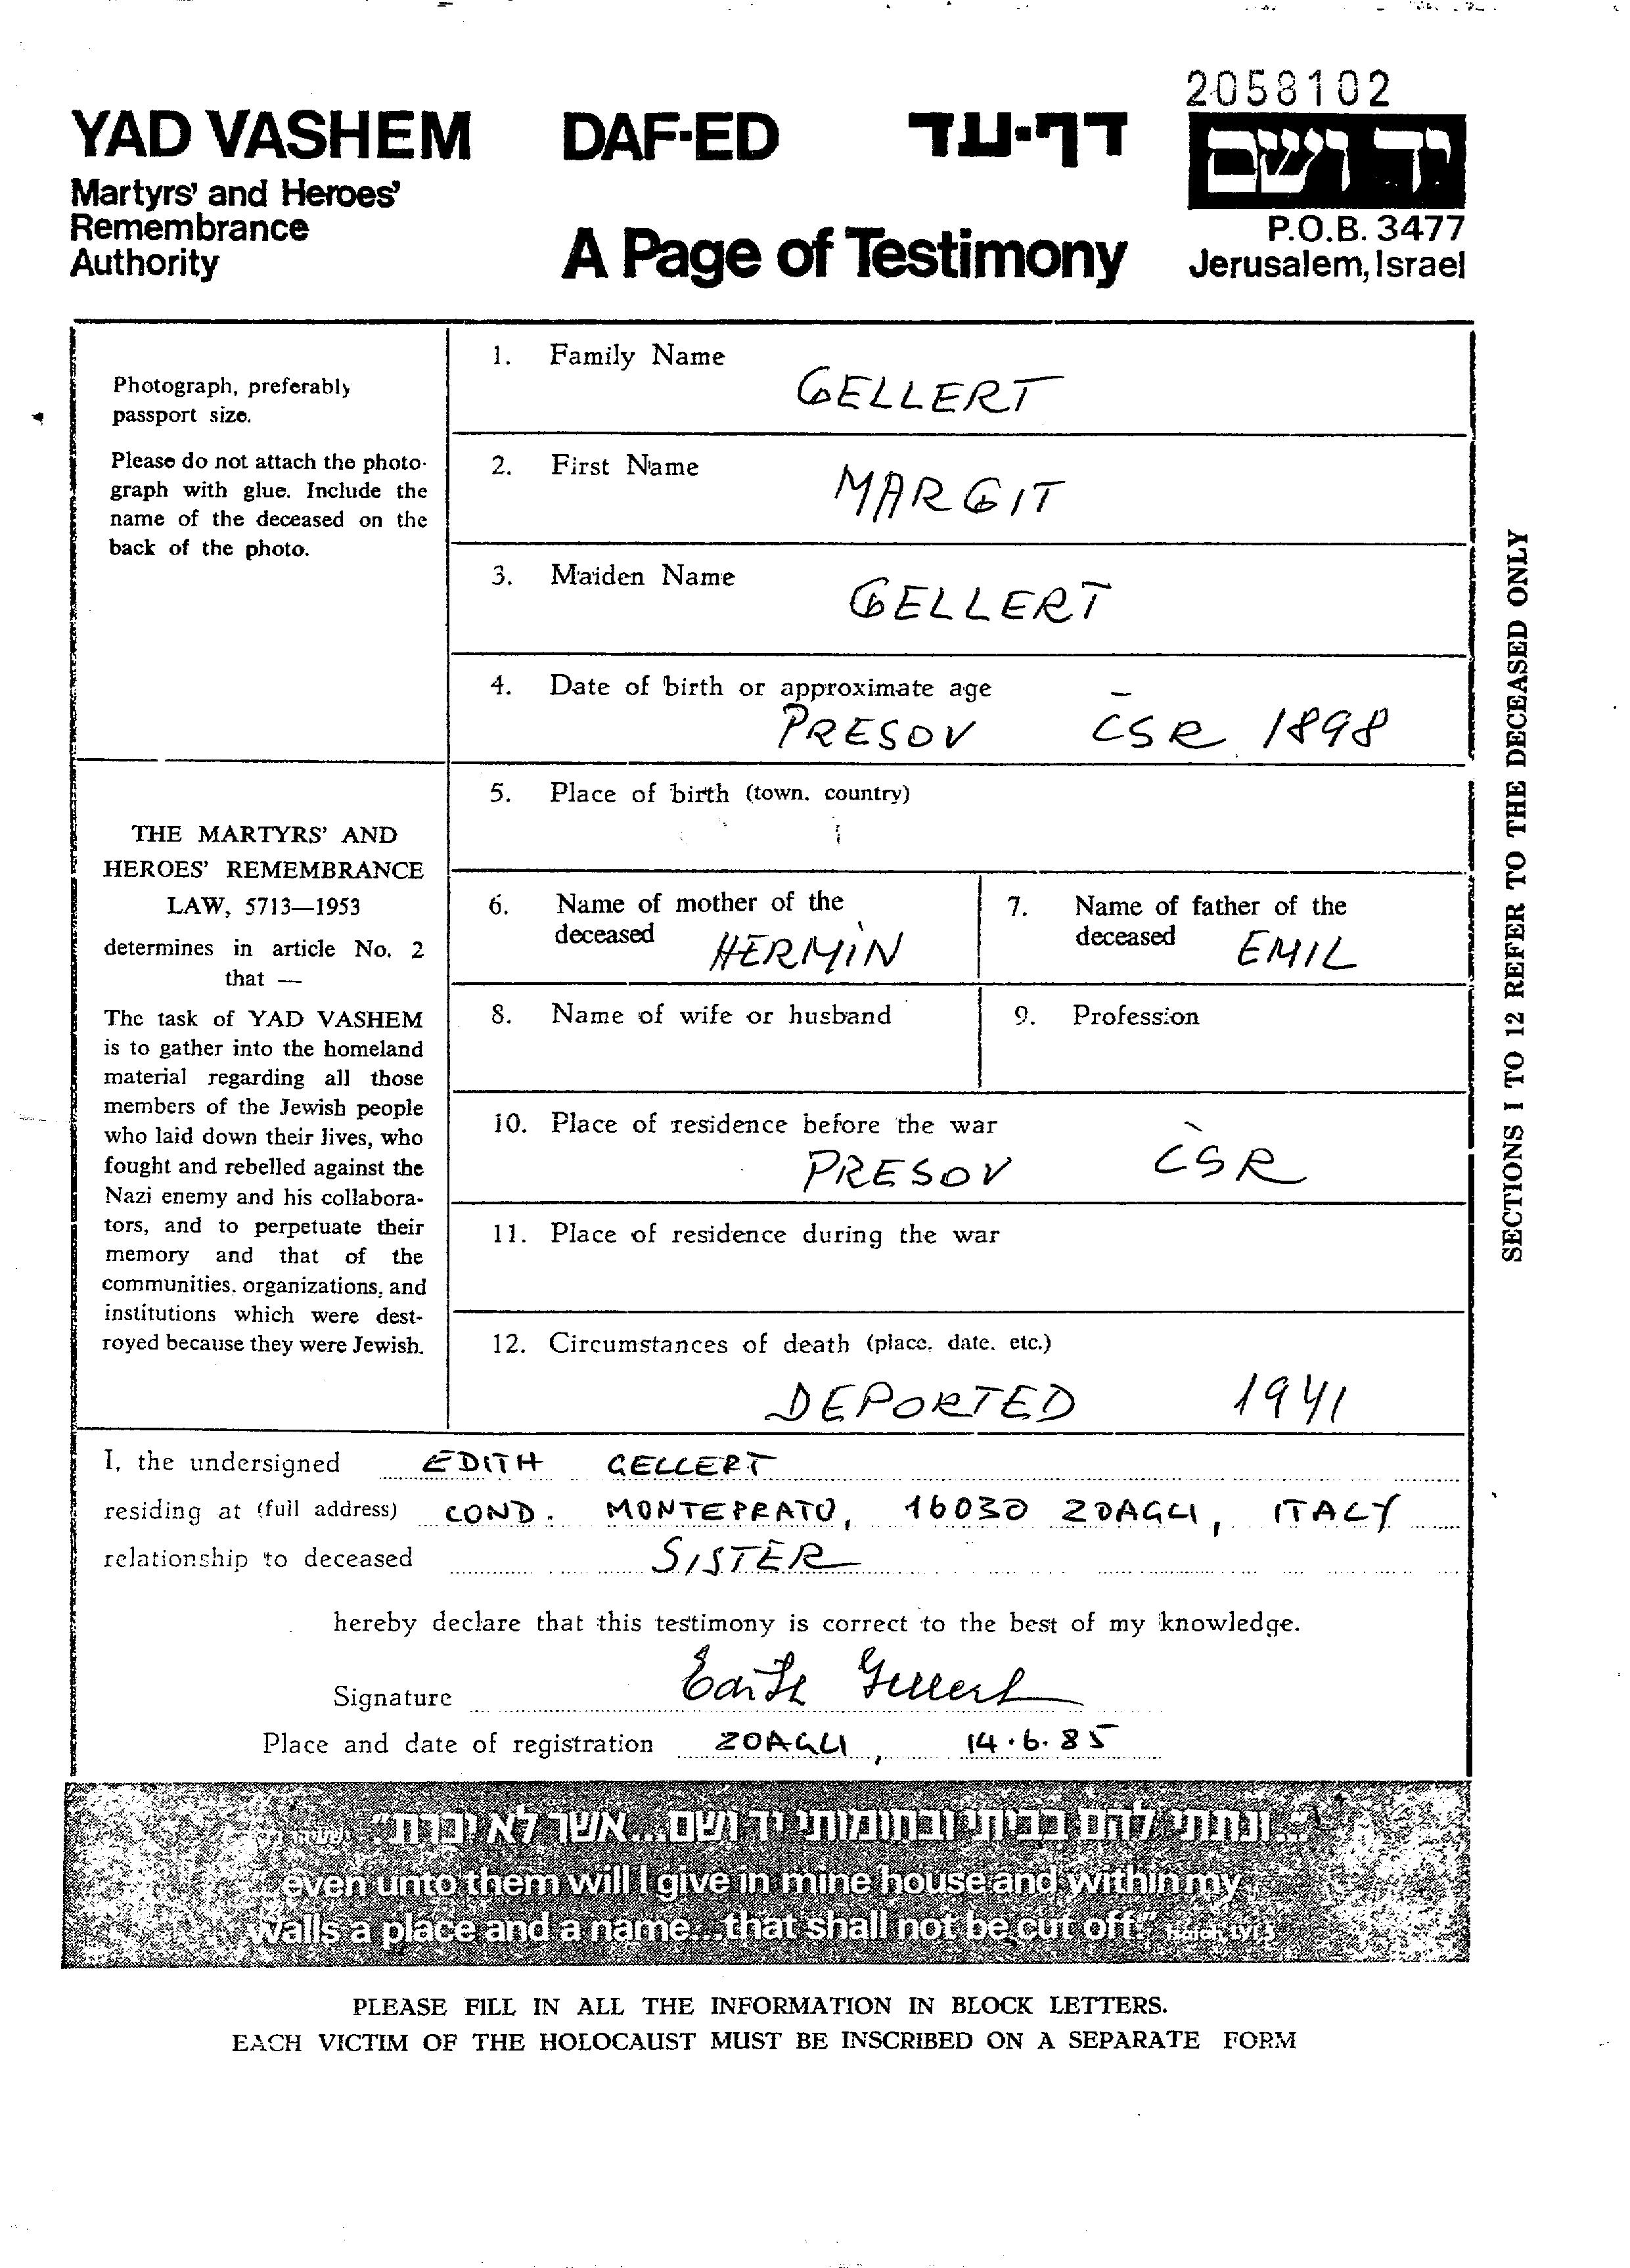 2058102
YAD VASHEM DAF-ED דף-עד יד ושם
Martyrs' and Heroes'
Remembrance
Authority
A Page of Testimony
P.O.B. 3477
Jerusalem, Israel
Photograph, preferably
passport size.
Please do not attach the photo-
graph with glue. Include the
name of the deceased on the
back of the photo.
THE MARTYRS' AND
HEROES' REMEMBRANCE
LAW, 5713—1953
determines in article No. 2
that —
The task of YAD VASHEM
is to gather into the homeland
material regarding all those
members of the Jewish people
who laid down their lives, who
fought and rebelled against the
Nazi enemy and his collabora-
tors, and to perpetuate their
memory and that of the
communities, organizations, and
institutions which were dest-
royed because they were Jewish.
1. Family Name
GELLERT
2. First Name
MARGIT
3. Maiden Name
GELLERT
4. Date of birth or approximate age
PRESOV ČSR 1898
5. Place of birth (town, country)
6. Name of mother of the
deceased HERMIN
7. Name of father of the
deceased EMIL
8. Name of wife or husband
9. Profession
10. Place of residence before the war
PRESOV ČSR
11. Place of residence during the war
12. Circumstances of death (place, date, etc.)
DEPORTED 1941
SECTIONS 1 TO 12 REFER TO THE DECEASED ONLY
I, the undersigned EDITH GELLERT
residing at (full address) COND. MONTEPRATO, 16030 ZOAGLI, ITALY
relationship to deceased SISTER
hereby declare that this testimony is correct to the best of my knowledge.
Signature Edith Gellert
Place and date of registration ZOAGLI, 14.6.85
"...ונתתי להם בביתי ובחומותי יד ושם...אשר לא יכרת".
"...even unto them will I give in mine house and within my
walls a place and a name...that shall not be cut off."
PLEASE FILL IN ALL THE INFORMATION IN BLOCK LETTERS.
EACH VICTIM OF THE HOLOCAUST MUST BE INSCRIBED ON A SEPARATE FORM